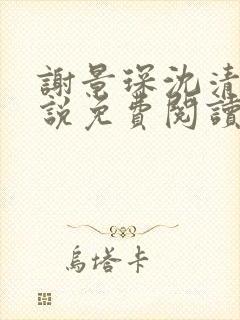 謝景琛沈清
說免費閱讀
烏塔卡